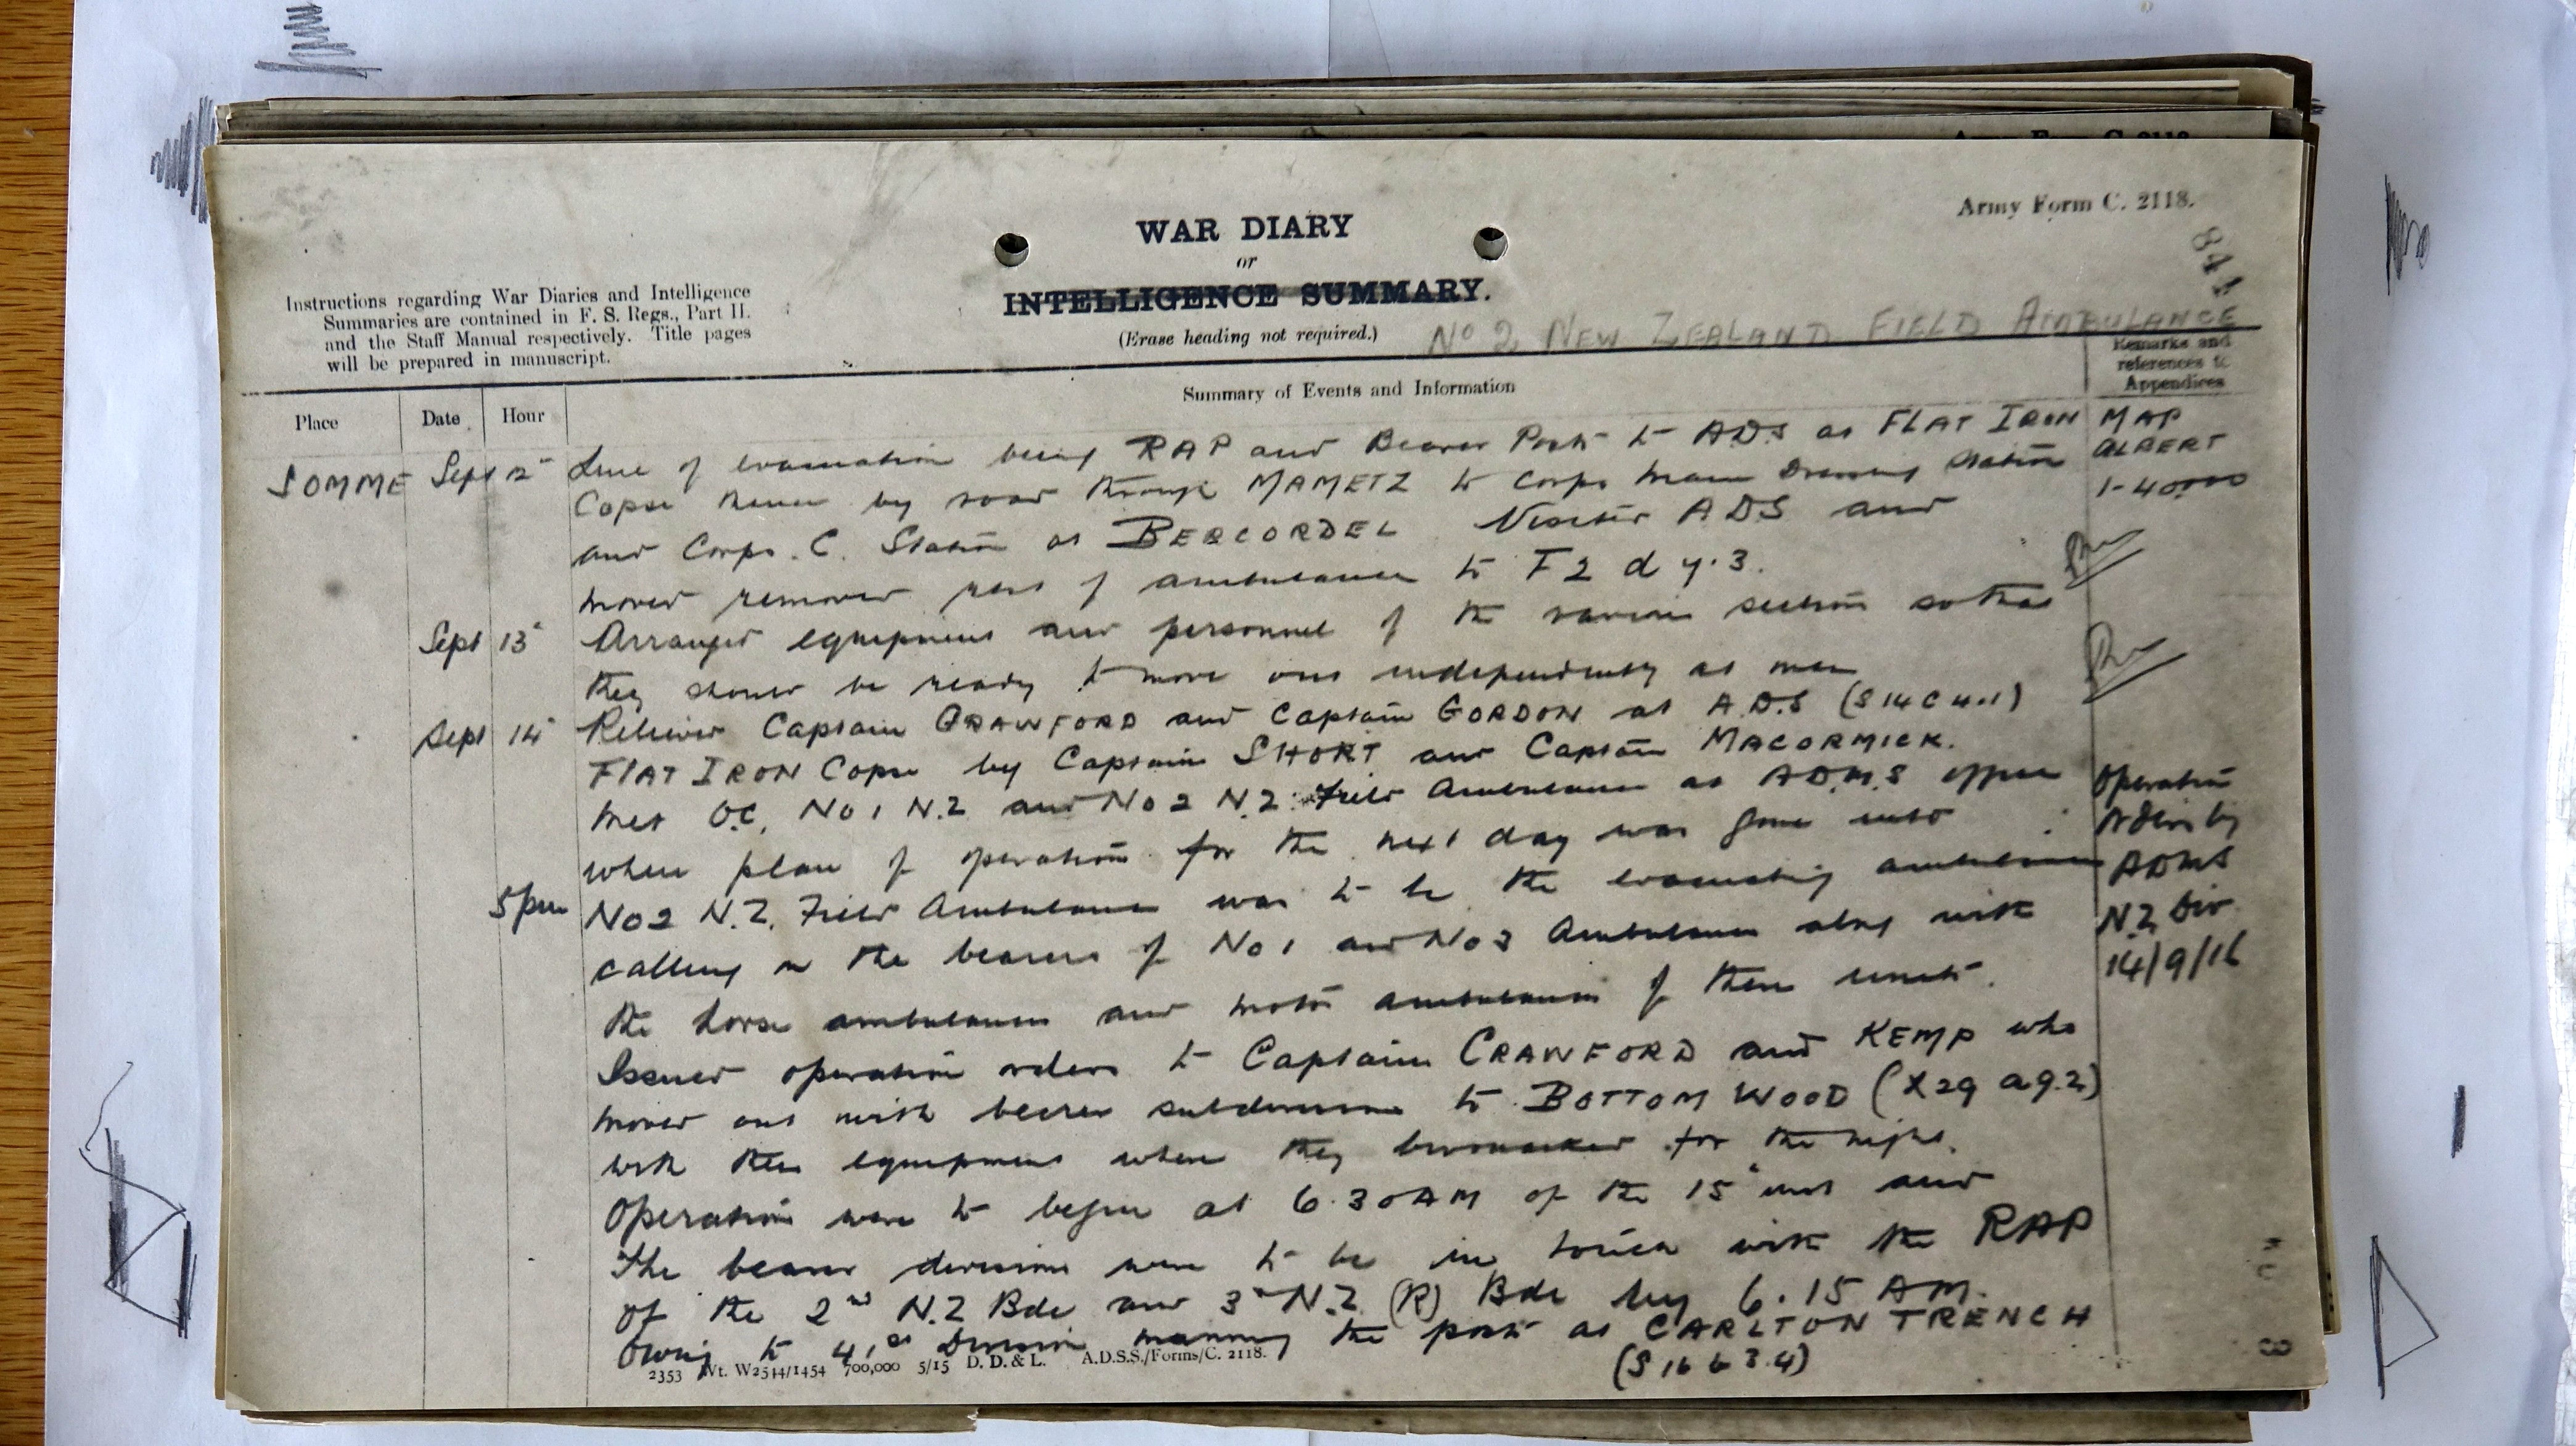 Army Form C. 2118.
84
WAR DIARY
or
INTELLIGENCE SUMMARY.
(Erase heading not required.)
Instructions regarding War Diaries and Intelligence
Summaries are contained in F. S. Regs., Part II.
and the Staff Manual respectively. Title pages
will be prepared in manuscript.
No 2 NEW ZEALAND FIELD AMBULANCE
Place
Date
Hour
Summary of Events and Information
Remarks and
references to
Appendices
SOMME Sept 12 Line of evacuation being RAP and Bearer Posts to ADS at FLAT IRON
Copse thence by road through MAMETZ to Corps Main Dressing Station
and Corps. C. Station at BERCORDEL Visited ADS and
moved remover rest of ambulance to F 2 d 4.3.
MAP
ALBERT
1-40000
Sept 13 Arranged equipment and personnel of the various sections so that
they should be ready to move out independently at once
Sept 14 Relieved Captain CRAWFORD and Captain GORDON at A.D.S (S 14 C 4.1)
FLAT IRON Copse by Captain SHORT and Captain MACORMICK.
Met O.C. No 1 N.Z and No 2 N.Z. Field Ambulance at A.D.M.S office
where plan of operations for the next day was gone into
5pm No 2 N.Z. Field Ambulance was to be the evacuating ambulance
calling on the bearers of No 1 and No 3 Ambulance along with
the horse ambulances and motor ambulances of these units.
Operation
Orders by
ADMS
N.Z Div
14/9/16
Issued operation orders to Captain CRAWFORD and KEMP who
moved out with bearer subdivisions to BOTTOM WOOD (X 29 a 9.2)
with their equipment where they bivouacked for the night.
Operations were to begin at 6.30 AM of the 15 inst and
The bearer divisions were to be in touch with the RAP
of the 2nd N.Z Bde and 3rd N.Z (R) Bde by 6.15 AM.
Owing to 41st Division manning the post at CARLTON TRENCH
(S 16 b 3.4)
2353 Wt. W2544/1454 700,000 5/15 D. D. & L. A.D.S.S./Forms/C. 2118.